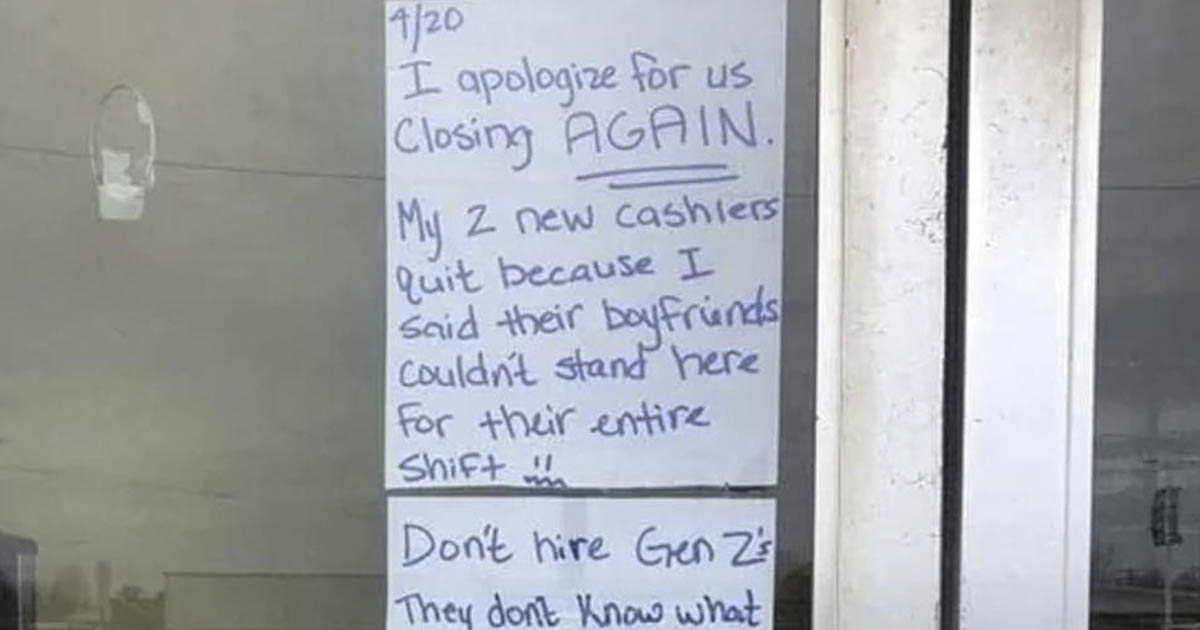 4/20
I apologize for us
Closing AGAIN.
My 2 new cashiers
quit because I
said their boyfriends
couldn't stand here
for their entire
shift
Don't hire Gen Z's
They don't know what